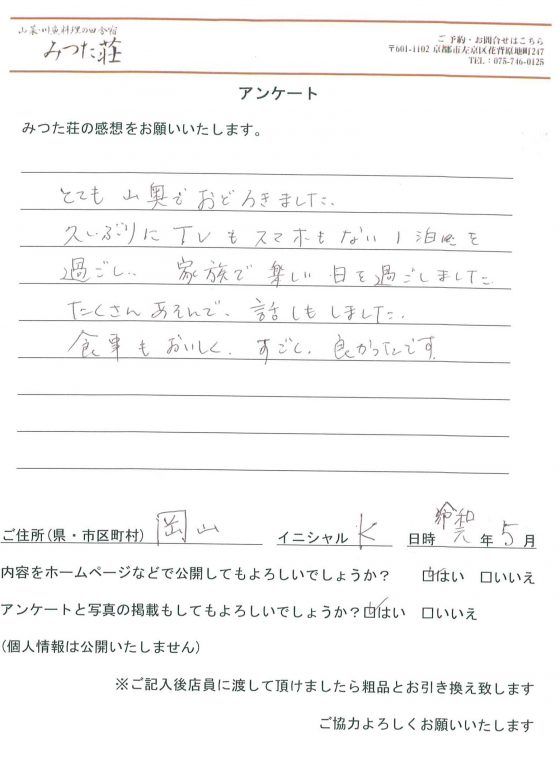 山菜・川魚料理の田舎宿
みつた荘
ご予約・お問合せはこちら
〒601-1102 京都市左京区花脊原地町247
TEL：075-746-0125
アンケート
みつた荘の感想をお願いいたします。
とても山奥でおどろきました。
久しぶりにTVもスマホもない1泊を
過ごし、家族で楽しい日を過ごしました
たくさんあそんで、話しもしました。
食事もおいしく、すごく、良かったです。
ご住所(県・市区町村) 岡山 イニシャル K 日時 令和元年5月
内容をホームページなどで公開してもよろしいでしょうか？ ☑はい □いいえ
アンケートと写真の掲載もしてもよろしいでしょうか？☑はい □いいえ
(個人情報は公開いたしません)
※ご記入後店員に渡して頂けましたら粗品とお引き換え致します
ご協力よろしくお願いいたします